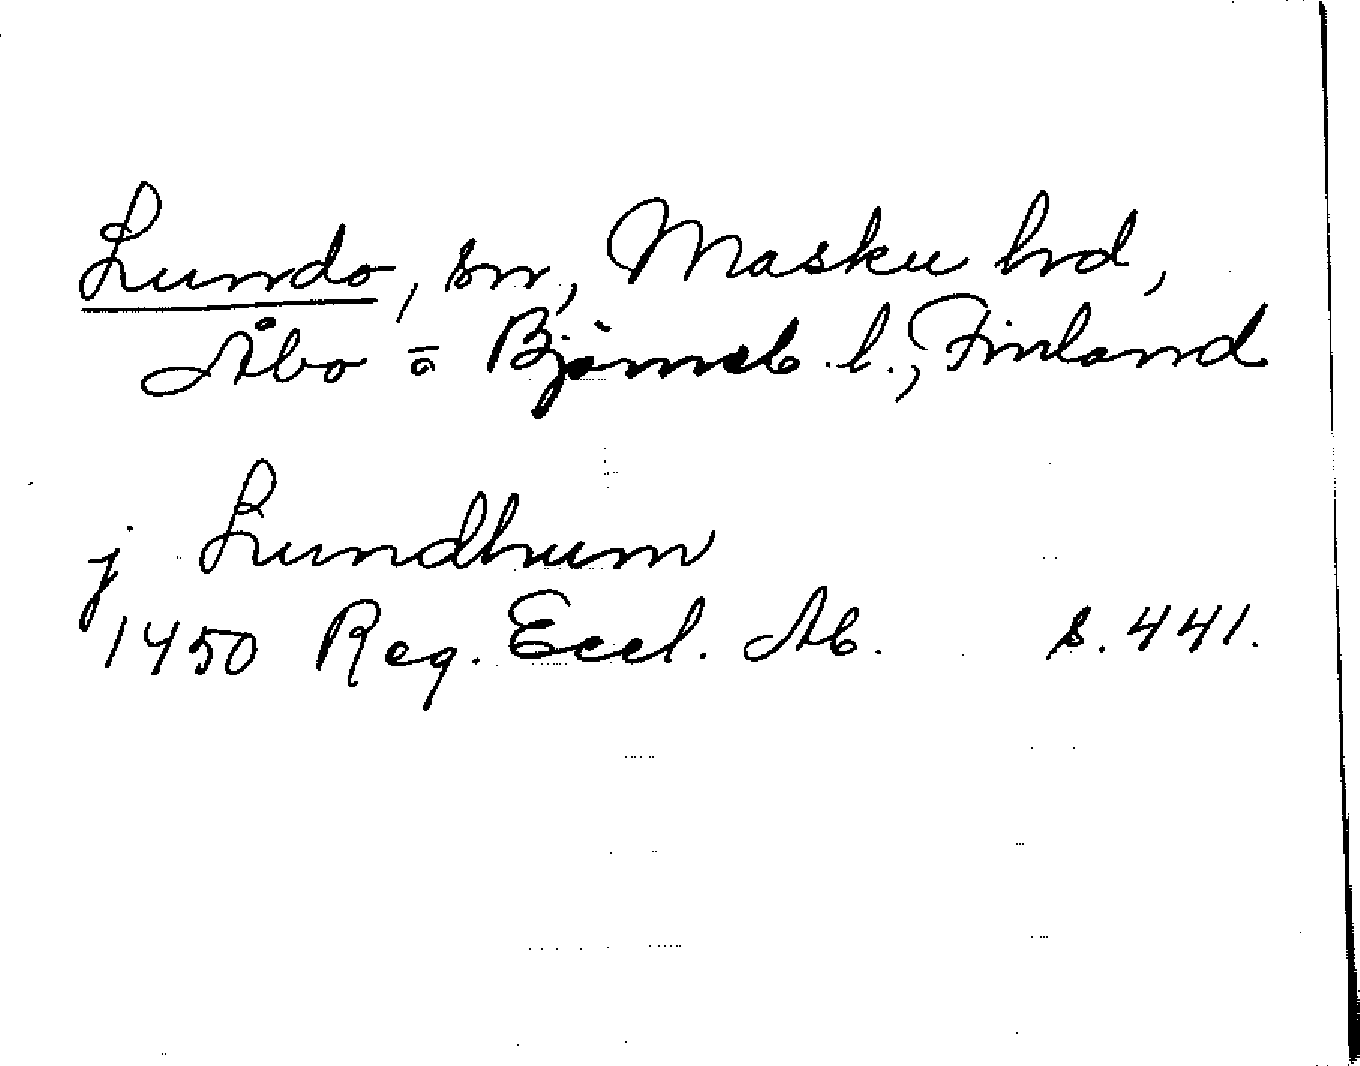 Lundo, sn, Masku hd,
Åbo o Björneb. l., Finland
j Lundhum
1450 Reg. Eccl. Ab. s. 441.